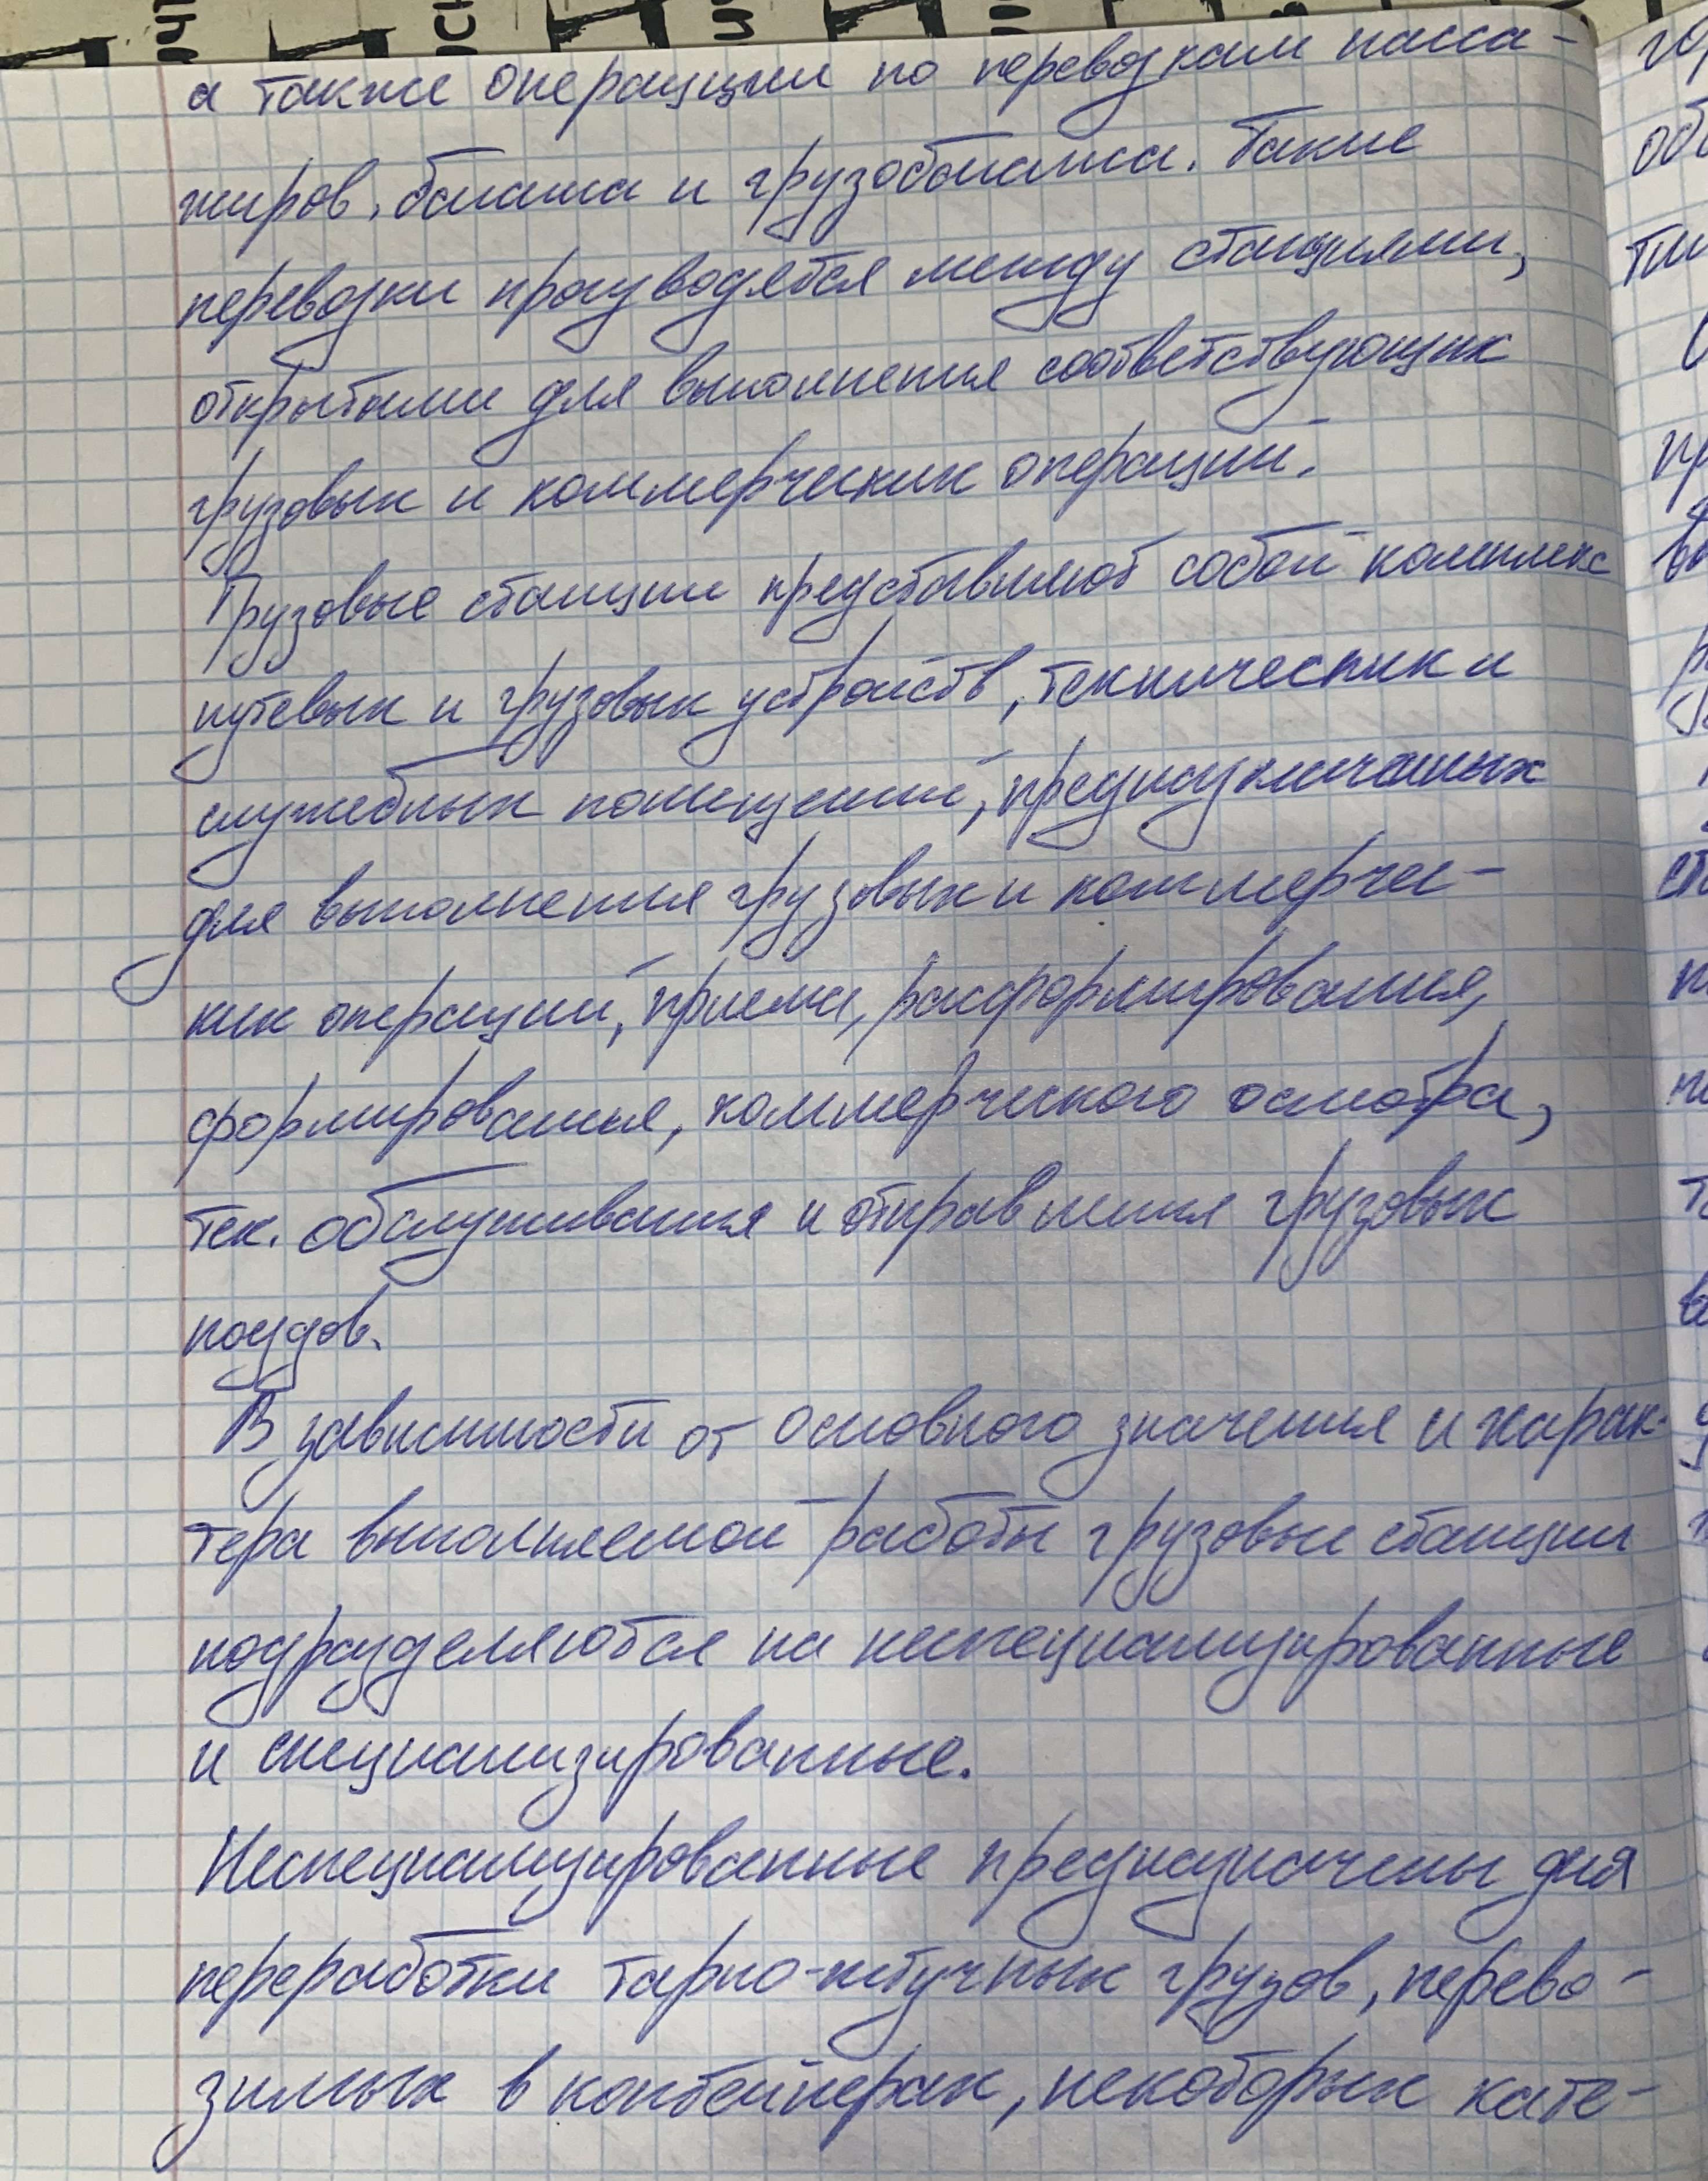 а также операции по перевозкам пасса-
жиров, багажа и грузобагажа. Такие
перевозки производятся между станциями,
открытыми для выполнения соответствующих
грузовых и коммерческих операций.
Грузовые станции представляют собой комплекс
путевых и грузовых устройств, технических и
служебных помещений, предназначенных
для выполнения грузовых и коммерчес-
ких операций, приема, расформирования,
формирования, коммерческого осмотра,
тех. обслуживания и отправления грузовых
поездов.
В зависимости от основного значения и харак-
тера выполняемой работы грузовые станции
подразделяются на неспециализированные
и специализированные.
Неспециализированные предназначены для
переработки тарно-штучных грузов, перево-
зимых в контейнерах, некоторых кате-